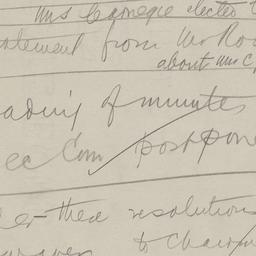 Mrs Carnegie elected
atement from Mr Ro
about Mrs C
ading of minutes
ec Com postpone
er these resolutions
to Chairm